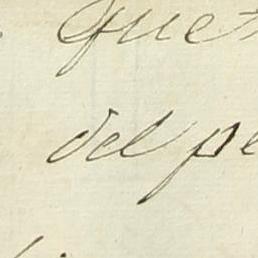 que
del pe